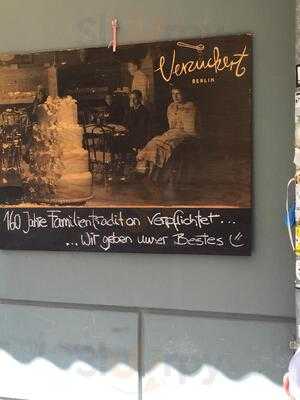 Verzuckert
BERLIN
160 Jahre Familientradition verpflichtet...
...Wir geben unser Bestes